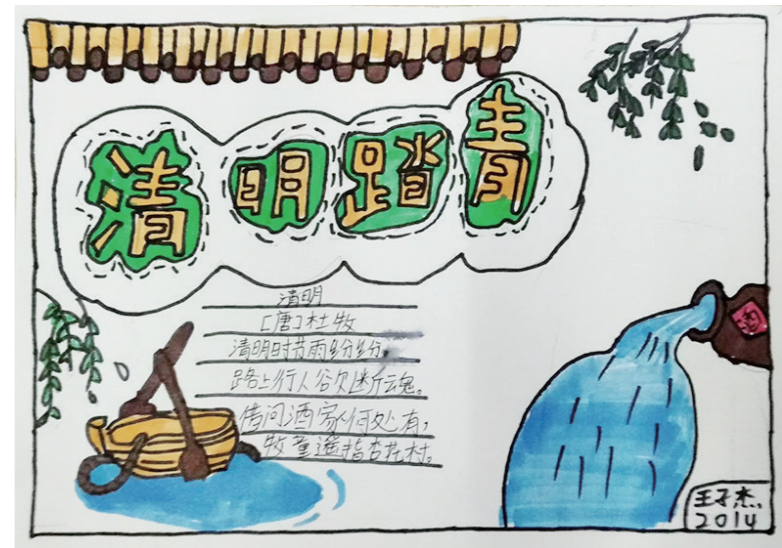 清明踏青
清明
[唐]杜牧
清明时节雨纷纷
路上行人欲断魂。
借问酒家何处有,
牧童遥指杏花村。
酒
王子杰
2014